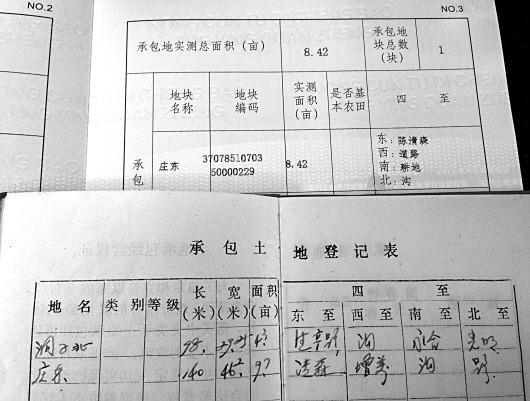 NO.2
NO.3
承包地实测总面积（亩） 8.42 承包地块总数（块） 1
地块名称 地块编码 实测面积（亩） 是否基本农田 四 至
承包 庄东 3707851070350000229 8.42
东：陈清森
西：道路
南：耕地
北：沟
承包土地登记表
地名 类别 等级 长（米） 宽（米） 面积（亩） 四 至
东至 西至 南至 北至
98. 沟
庄东 140 46² 9² 清森 沟